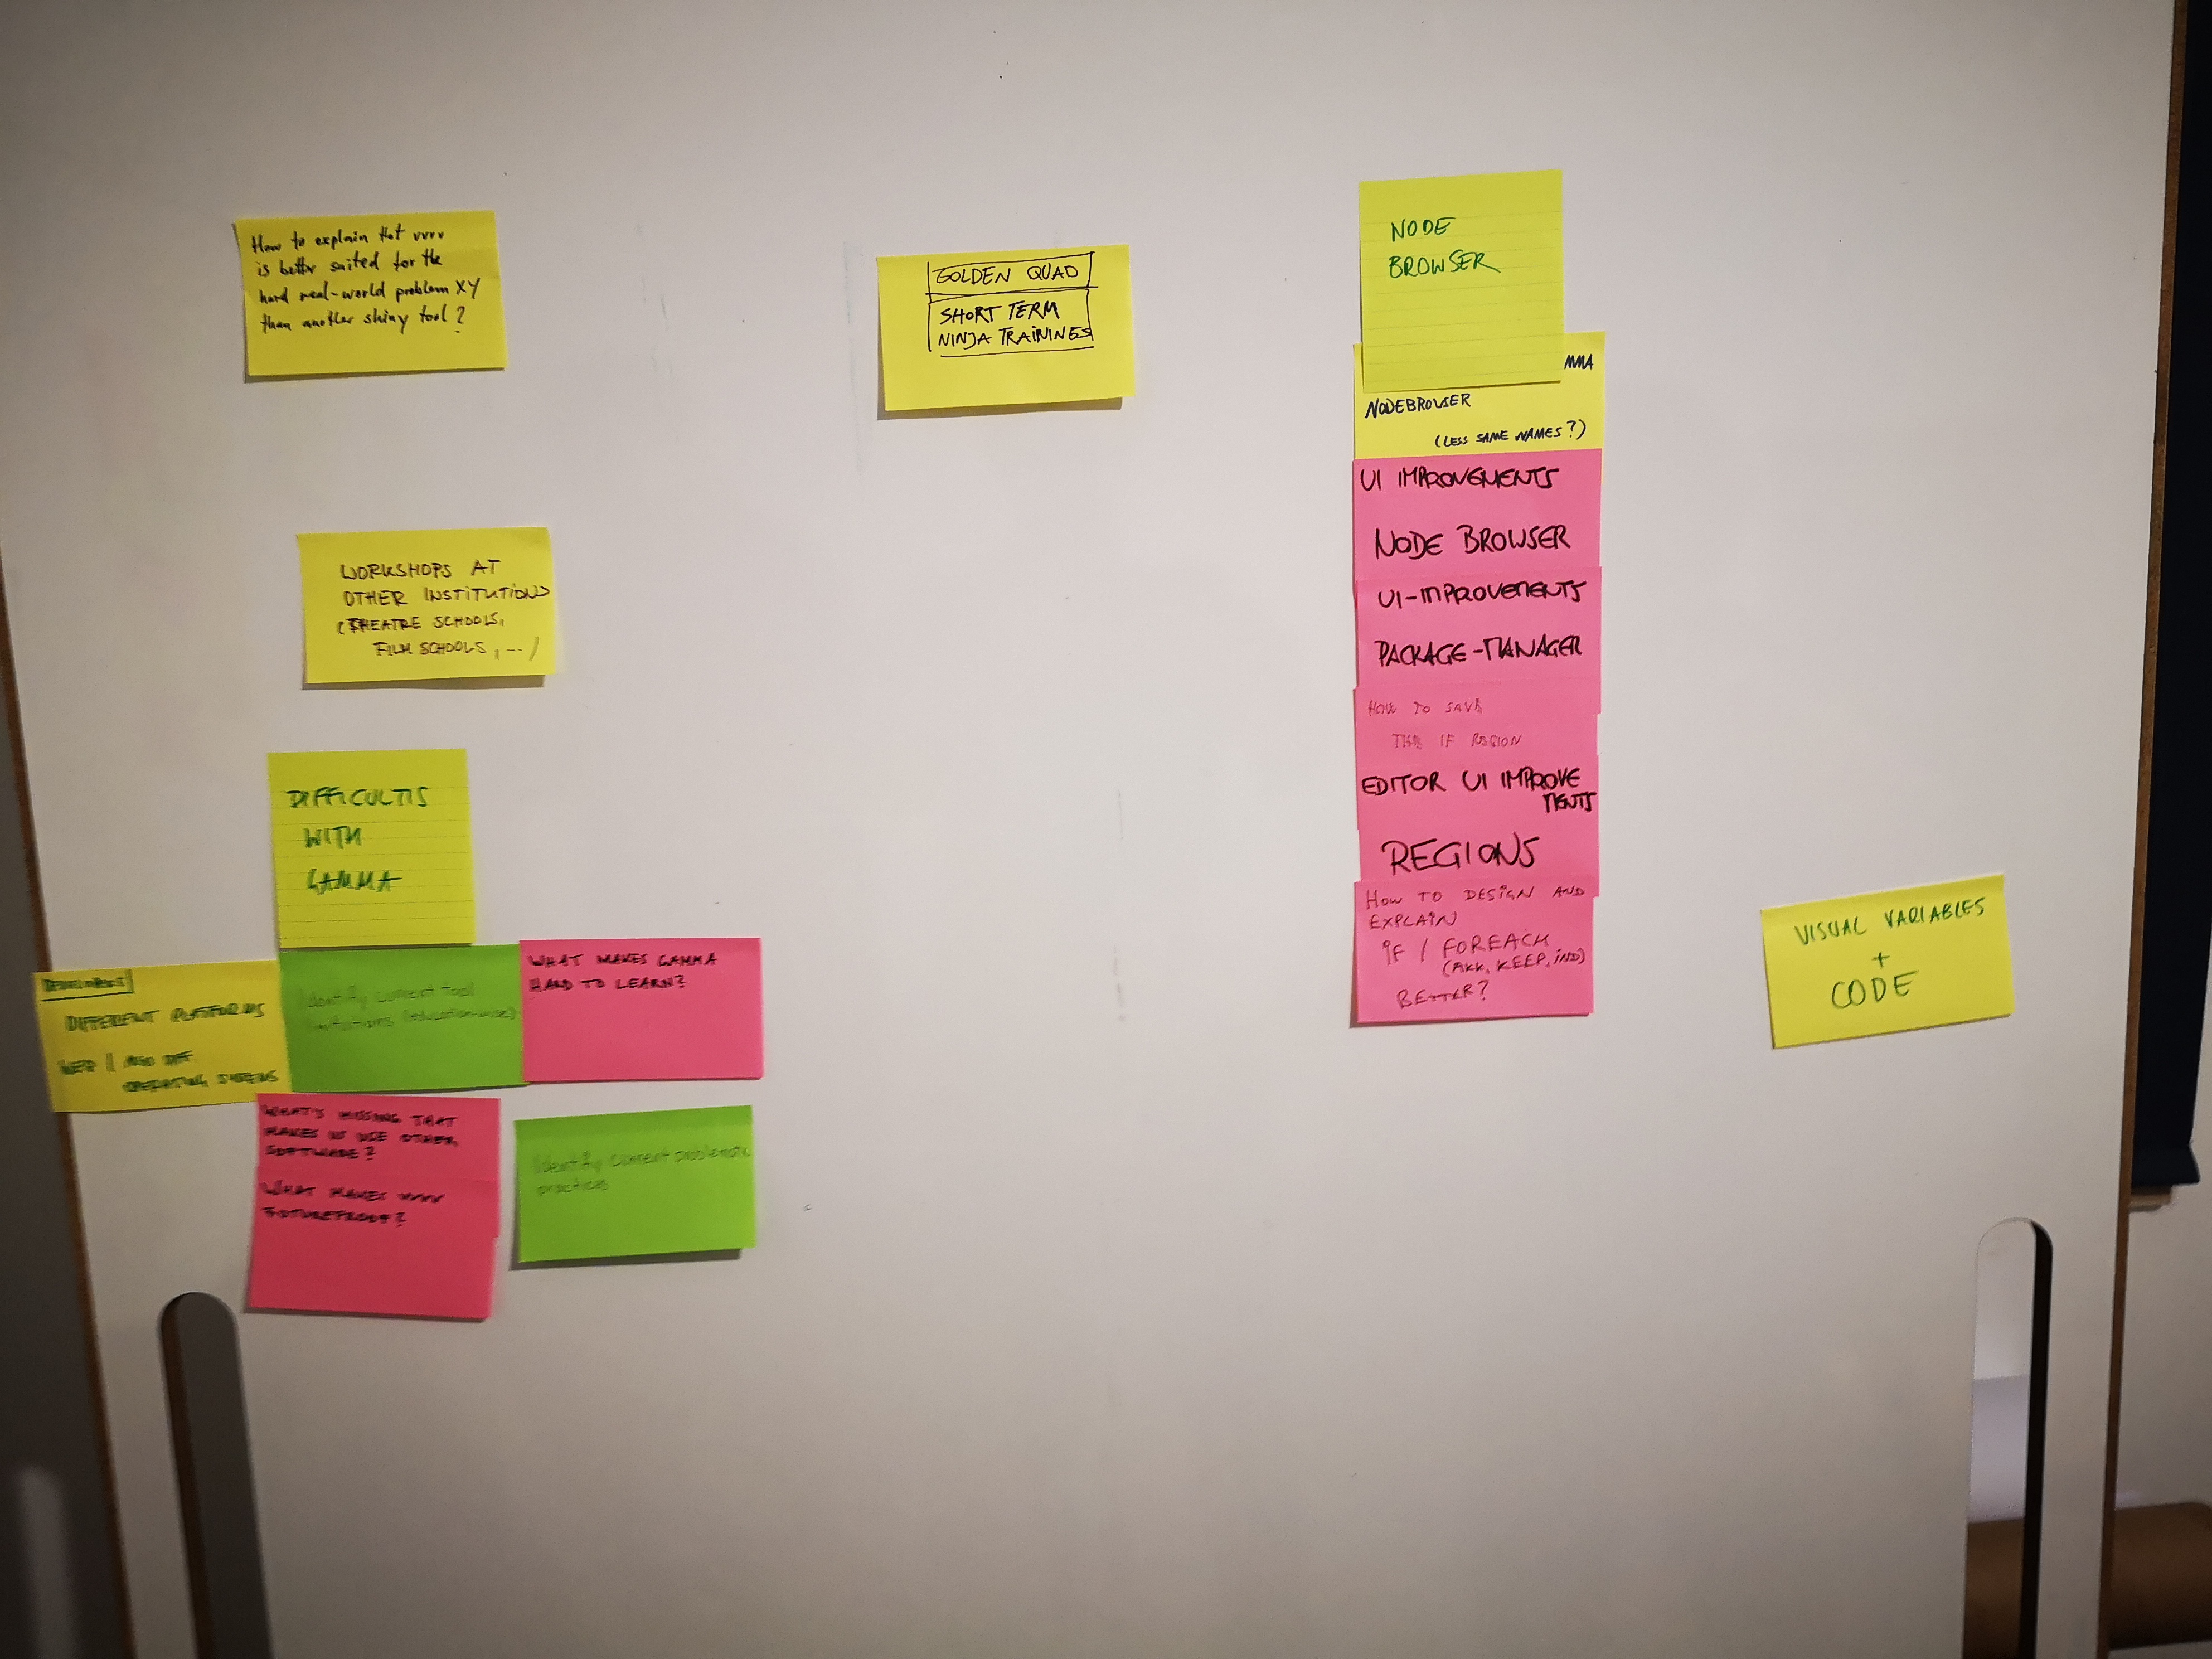 How to explain that vvvv
is better suited for the
hard real-world problem XY
than another shiny tool?
WORKSHOPS AT
OTHER INSTITUTIONS
(THEATRE SCHOOLS,
FILM SCHOOLS, ...)
DIFFICULTIS
WITH
GAMMA
DIFFERENT PLATFORMS
WEB / AND DIFF
OPERATING SYSTEMS
Identify current tool
limitations (education-wise)
WHAT MAKES GAMMA
HARD TO LEARN?
WHAT'S MISSING THAT
MAKES US USE OTHER
SOFTWARE?
WHAT MAKES vvvv
FUTUREPROOF?
Identify current problematic
practices
GOLDEN QUAD
SHORT TERM
NINJA TRAININGS
NODE
BROWSER
MMA
NODEBROWSER
(LESS SAME NAMES?)
UI IMPROVEMENTS
NODE BROWSER
UI-IMPROVEMENTS
PACKAGE-MANAGER
HOW TO SAVE
THE IF REGION
EDITOR UI IMPROVE
MENTS
REGIONS
HOW TO DESIGN AND
EXPLAIN
IF / FOREACH
(AKK, KEEP, IND)
BETTER?
VISUAL VARIABLES
+
CODE